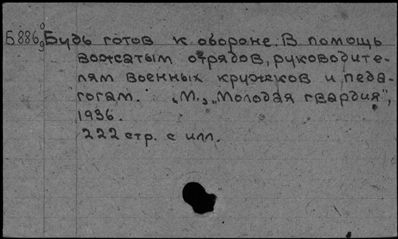 Б886 Будь готов к обороне. В помощь
вожатым отрядов, руководите-
лям военных кружков и педа-
гогам. М., "Молодая гвардия",
1936.
222 стр. с илл.